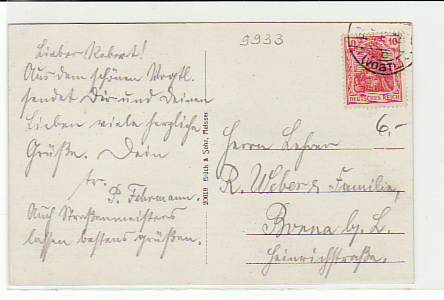 9933
Lieber Robert!
Aus dem schönen Vogtl.
sendet Dir und Deinen
Lieben viele herzliche
Grüße. Dein
tr.
P. Fehrmann.
Auch Straßenmeisters
lassen bestens grüßen.
20018 Brück & Sohn, Meissen
10
10
DEUTSCHES REICH
(VOGTL.)
6,-
Herrn Lehrer
R. Weber & Familie,
Borna b/L.
Heinrichstraße.